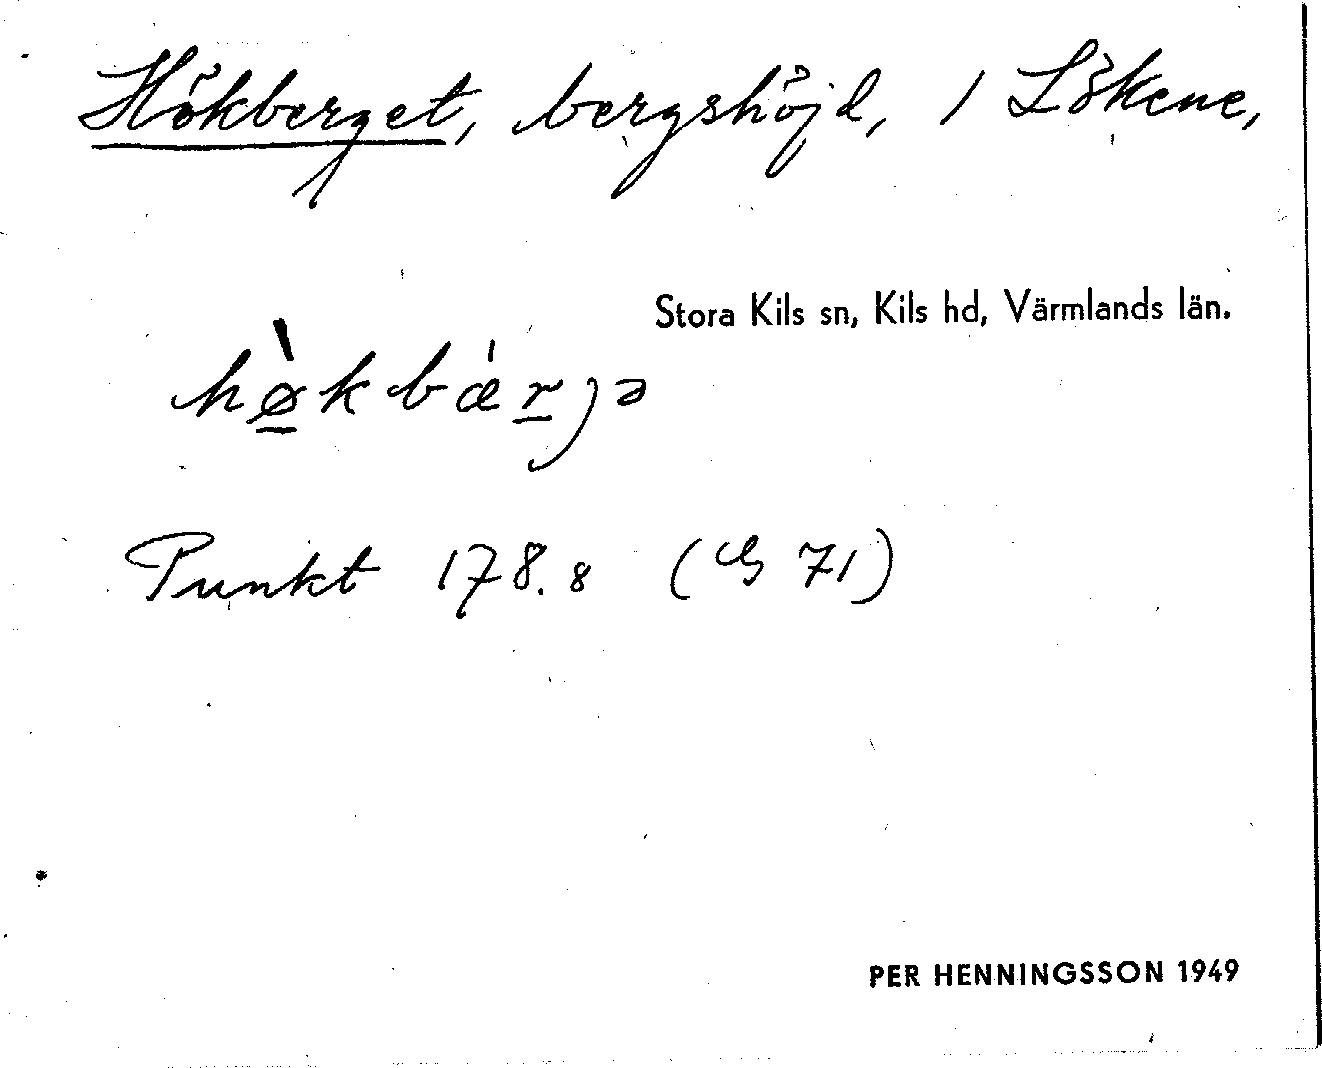 Hökberget, bergshöjd, 1 Lökene,
Stora Kils sn, Kils hd, Värmlands län.
hø̀kbærjə
Punkt 178.8 (G 71)
PER HENNINGSSON 1949